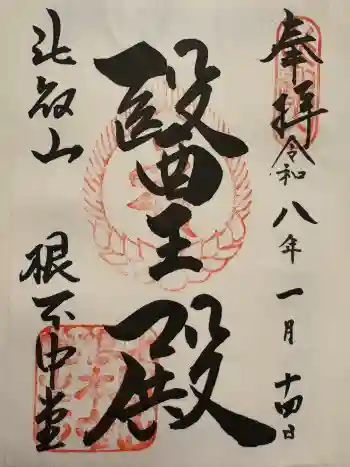 奉拝
令和八年一月十四日
醫王殿
比叡山 根本中堂